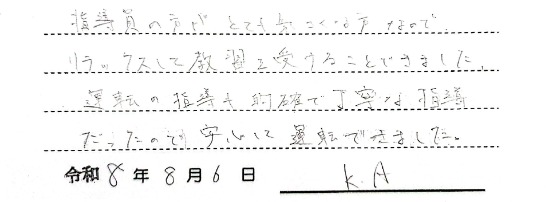 指導員の方がとても気さくな方なので、
リラックスして教習を受けることできました。
運転の指導も的確で丁寧な指導
だったので安心して運転できました。
令和8年8月6日 K.A